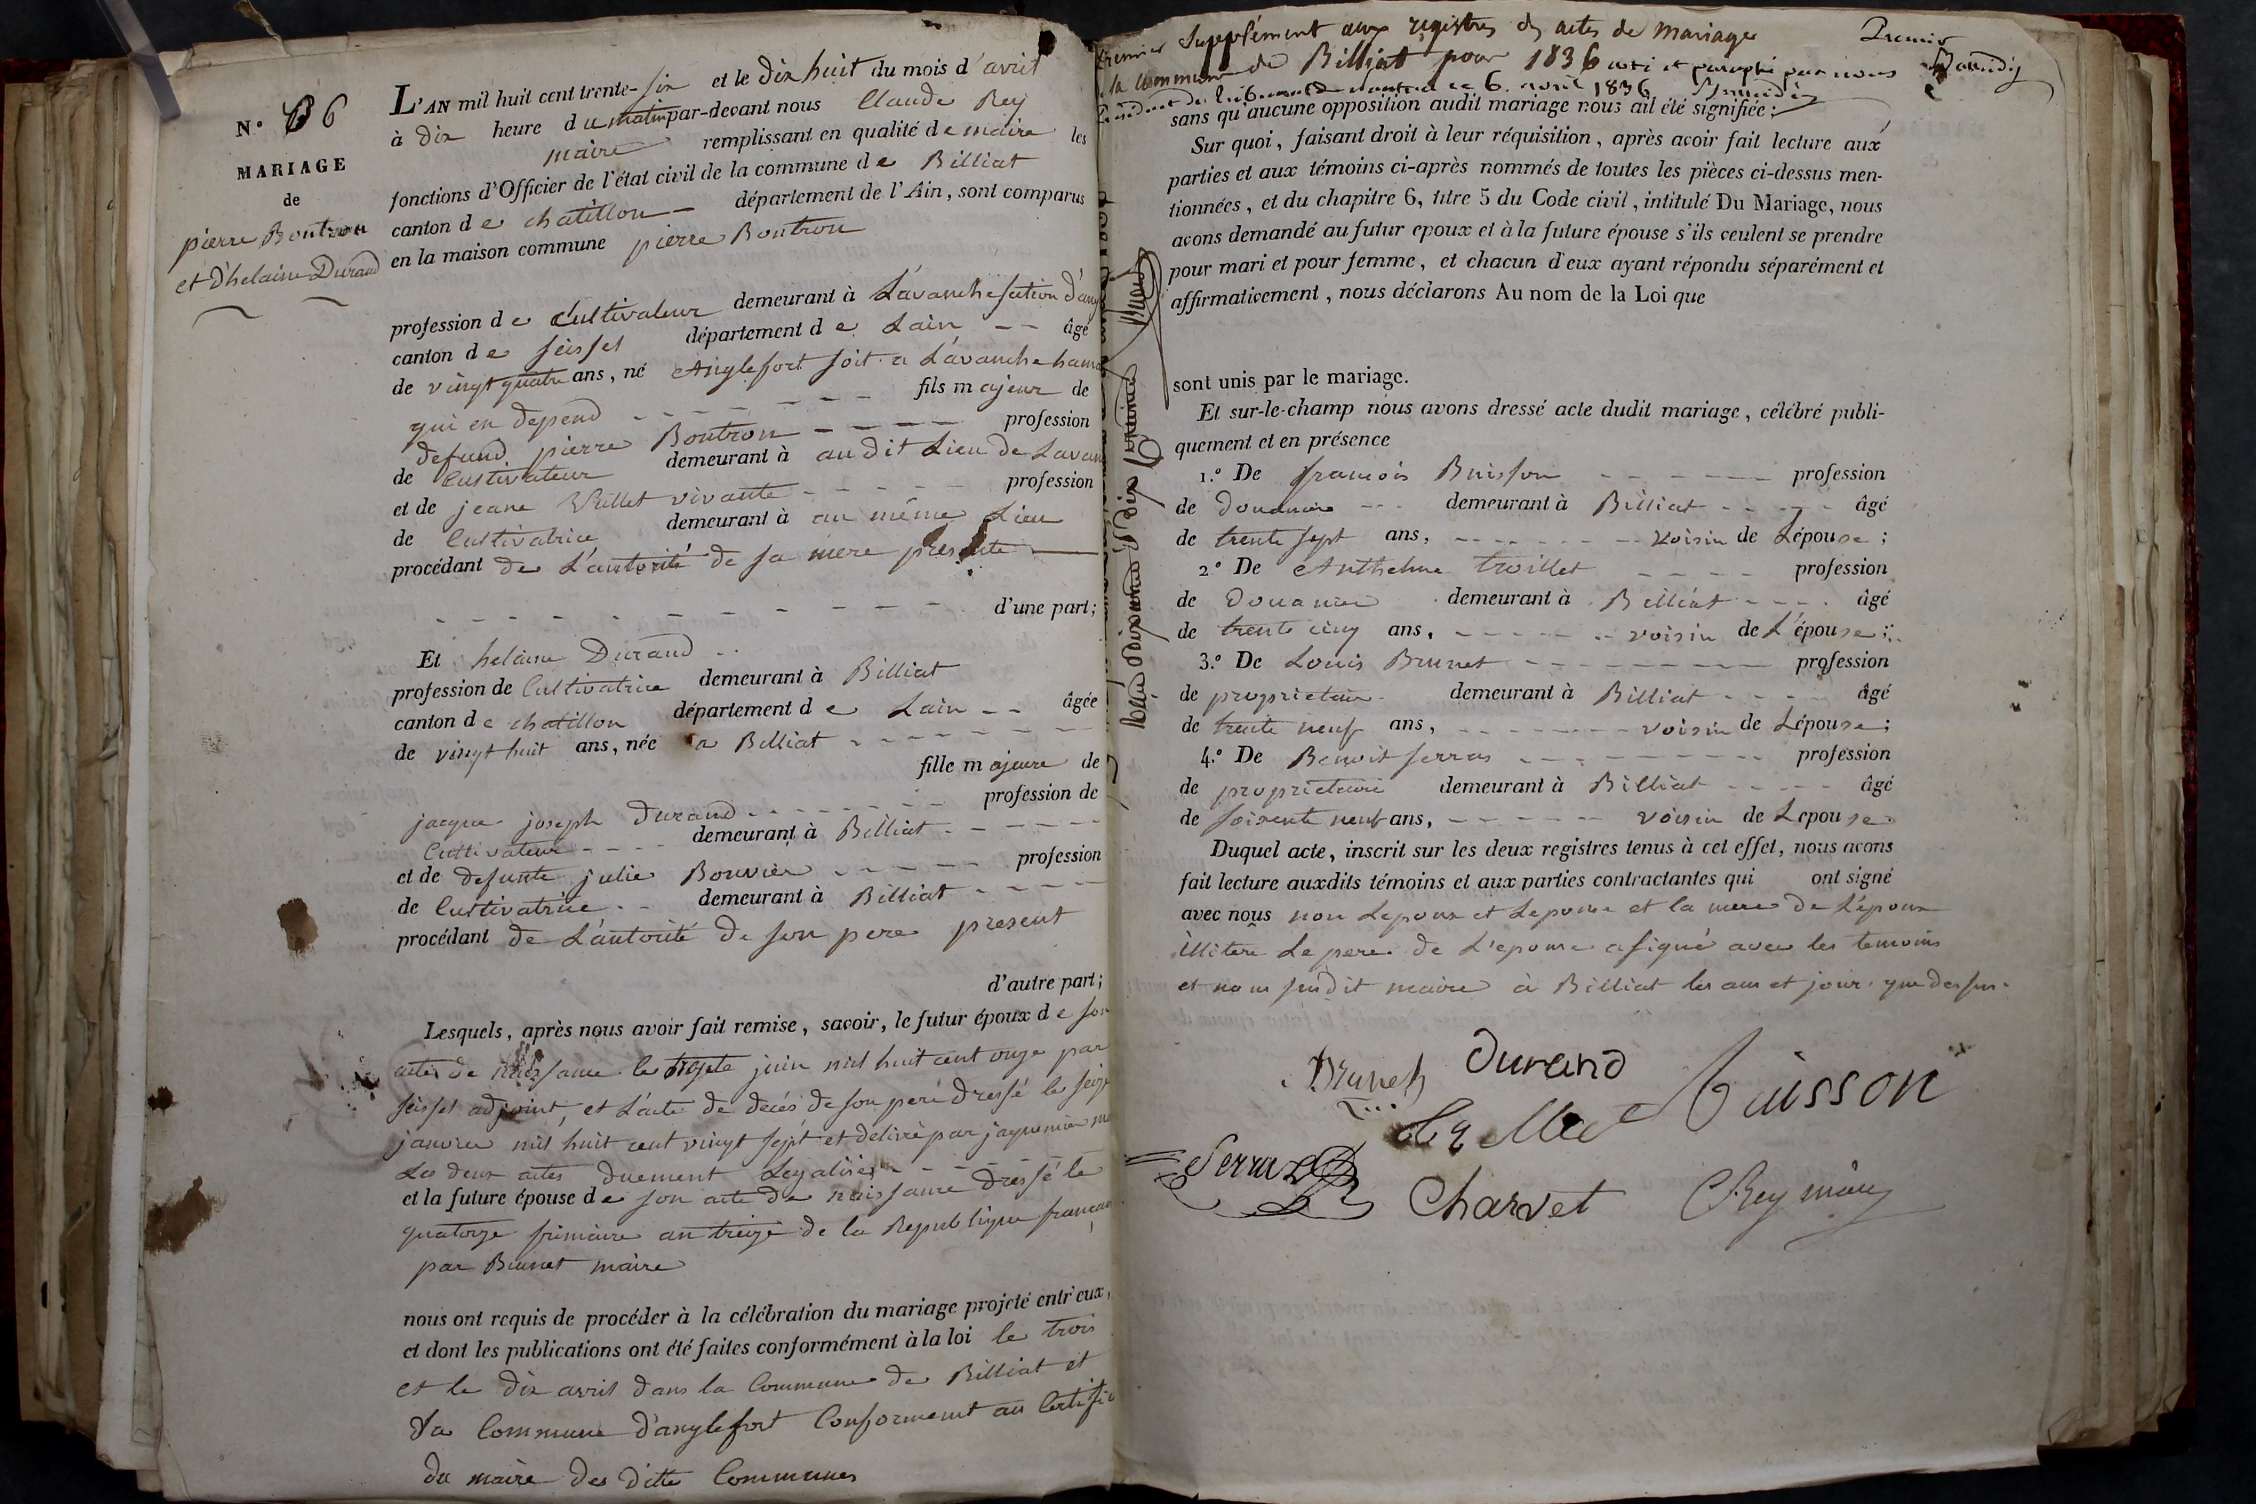 N.° 6
MARIAGE
de
pierre Bontron
et d'helaine Durand
L'AN mil huit cent trente-six et le dix huit du mois d'avril
à dix heure du matin par-devant nous Claude Rey
maire remplissant en qualité de maire les
fonctions d'Officier de l'état civil de la commune de Billiat
canton de chatillon département de l'Ain, sont comparus
en la maison commune pierre Bontron
profession de Cultivateur demeurant à Lavanche
canton de seissel département de Lain âgé
de vingt quatre ans, né Anglefort soit a Lavanche
qui en depend fils majeur de
defund pierre Bontron profession
de Cultivateur demeurant à au dit Lieu de Lavan
et de jeane vivante profession
de Cultivatrice demeurant à au même Lieu
procédant de L'autorité de sa mere presente
d'une part;
Et helaine Durand
profession de Cultivatrice demeurant à Billiat
canton de chatillon département de Lain âgée
de vingt huit ans, née a Billiat
fille majeure de
jacque joseph Durand profession de
Cultivateur demeurant à Billiat
et de defunte julie Bouvier profession
de Cultivatrice demeurant à Billiat
procédant de L'autorité de son pere present
d'autre part;
Lesquels, après nous avoir fait remise, savoir, le futur époux de son
acte de naissance le juin mil huit cent onze par
seissel adjoint, et L'acte de decés de son peré dressé le seize
janvier mil huit cent vingt sept et delivré par jaquemier
Les deux actes duement Legalisés
et la future épouse de son acte de naissance dressé le
quatorze frimaire an treize de la Republique
par Brunet maire
nous ont requis de procéder à la célébration du mariage projeté entr'eux,
et dont les publications ont été faites conformément à la loi le trois
et le dix avril dans la Commune de Billiat et
Commune d'anglefort Conforment au Certific
du maire des ditte Communes
Supplément aux registres des actes de mariage
la commune de Billiat pour 1836 coté et paraphé par nous
6 avril 1836
Premier
sans qu'aucune opposition audit mariage nous ait été signifiée;
Sur quoi, faisant droit à leur réquisition, après avoir fait lecture aux
parties et aux témoins ci-après nommés de toutes les pièces ci-dessus men-
tionnées, et du chapitre 6, titre 5 du Code civil, intitulé Du Mariage, nous
avons demandé au futur epoux et à la future épouse s'ils veulent se prendre
pour mari et pour femme, et chacun d'eux ayant répondu séparément et
affirmativement, nous déclarons Au nom de la Loi que
sont unis par le mariage.
Et sur-le-champ nous avons dressé acte dudit mariage, célébré publi-
quement et en présence
1.° De francois Buisson profession
de Douanier demeurant à Billiat âgé
de trente sept ans, voisin de Lépouse;
2.° De Anthelme profession
de Douanier demeurant à Billiat âgé
de trente cinq ans, voisin de L'épouse;
3.° De Louis Brunet profession
de proprietaire demeurant à Billiat âgé
de trente neuf ans, voisin de Lépouse;
4.° De Benoit ferras profession
de proprietaire demeurant à Billiat âgé
de soixente neuf ans, voisin de Lepouse
Duquel acte, inscrit sur les deux registres tenus à cet effet, nous avons
fait lecture auxdits témoins et aux parties contractantes qui ont signé
avec nous non Lepoux et Lepouse et la mere de L'époux
illitéré Le pere de L'epouse a signé avec les temoins
et nous susdit maire à Billiat les an et jour que dessus.
Brunet Durand Buisson
Ferraz Charvet CRey maire